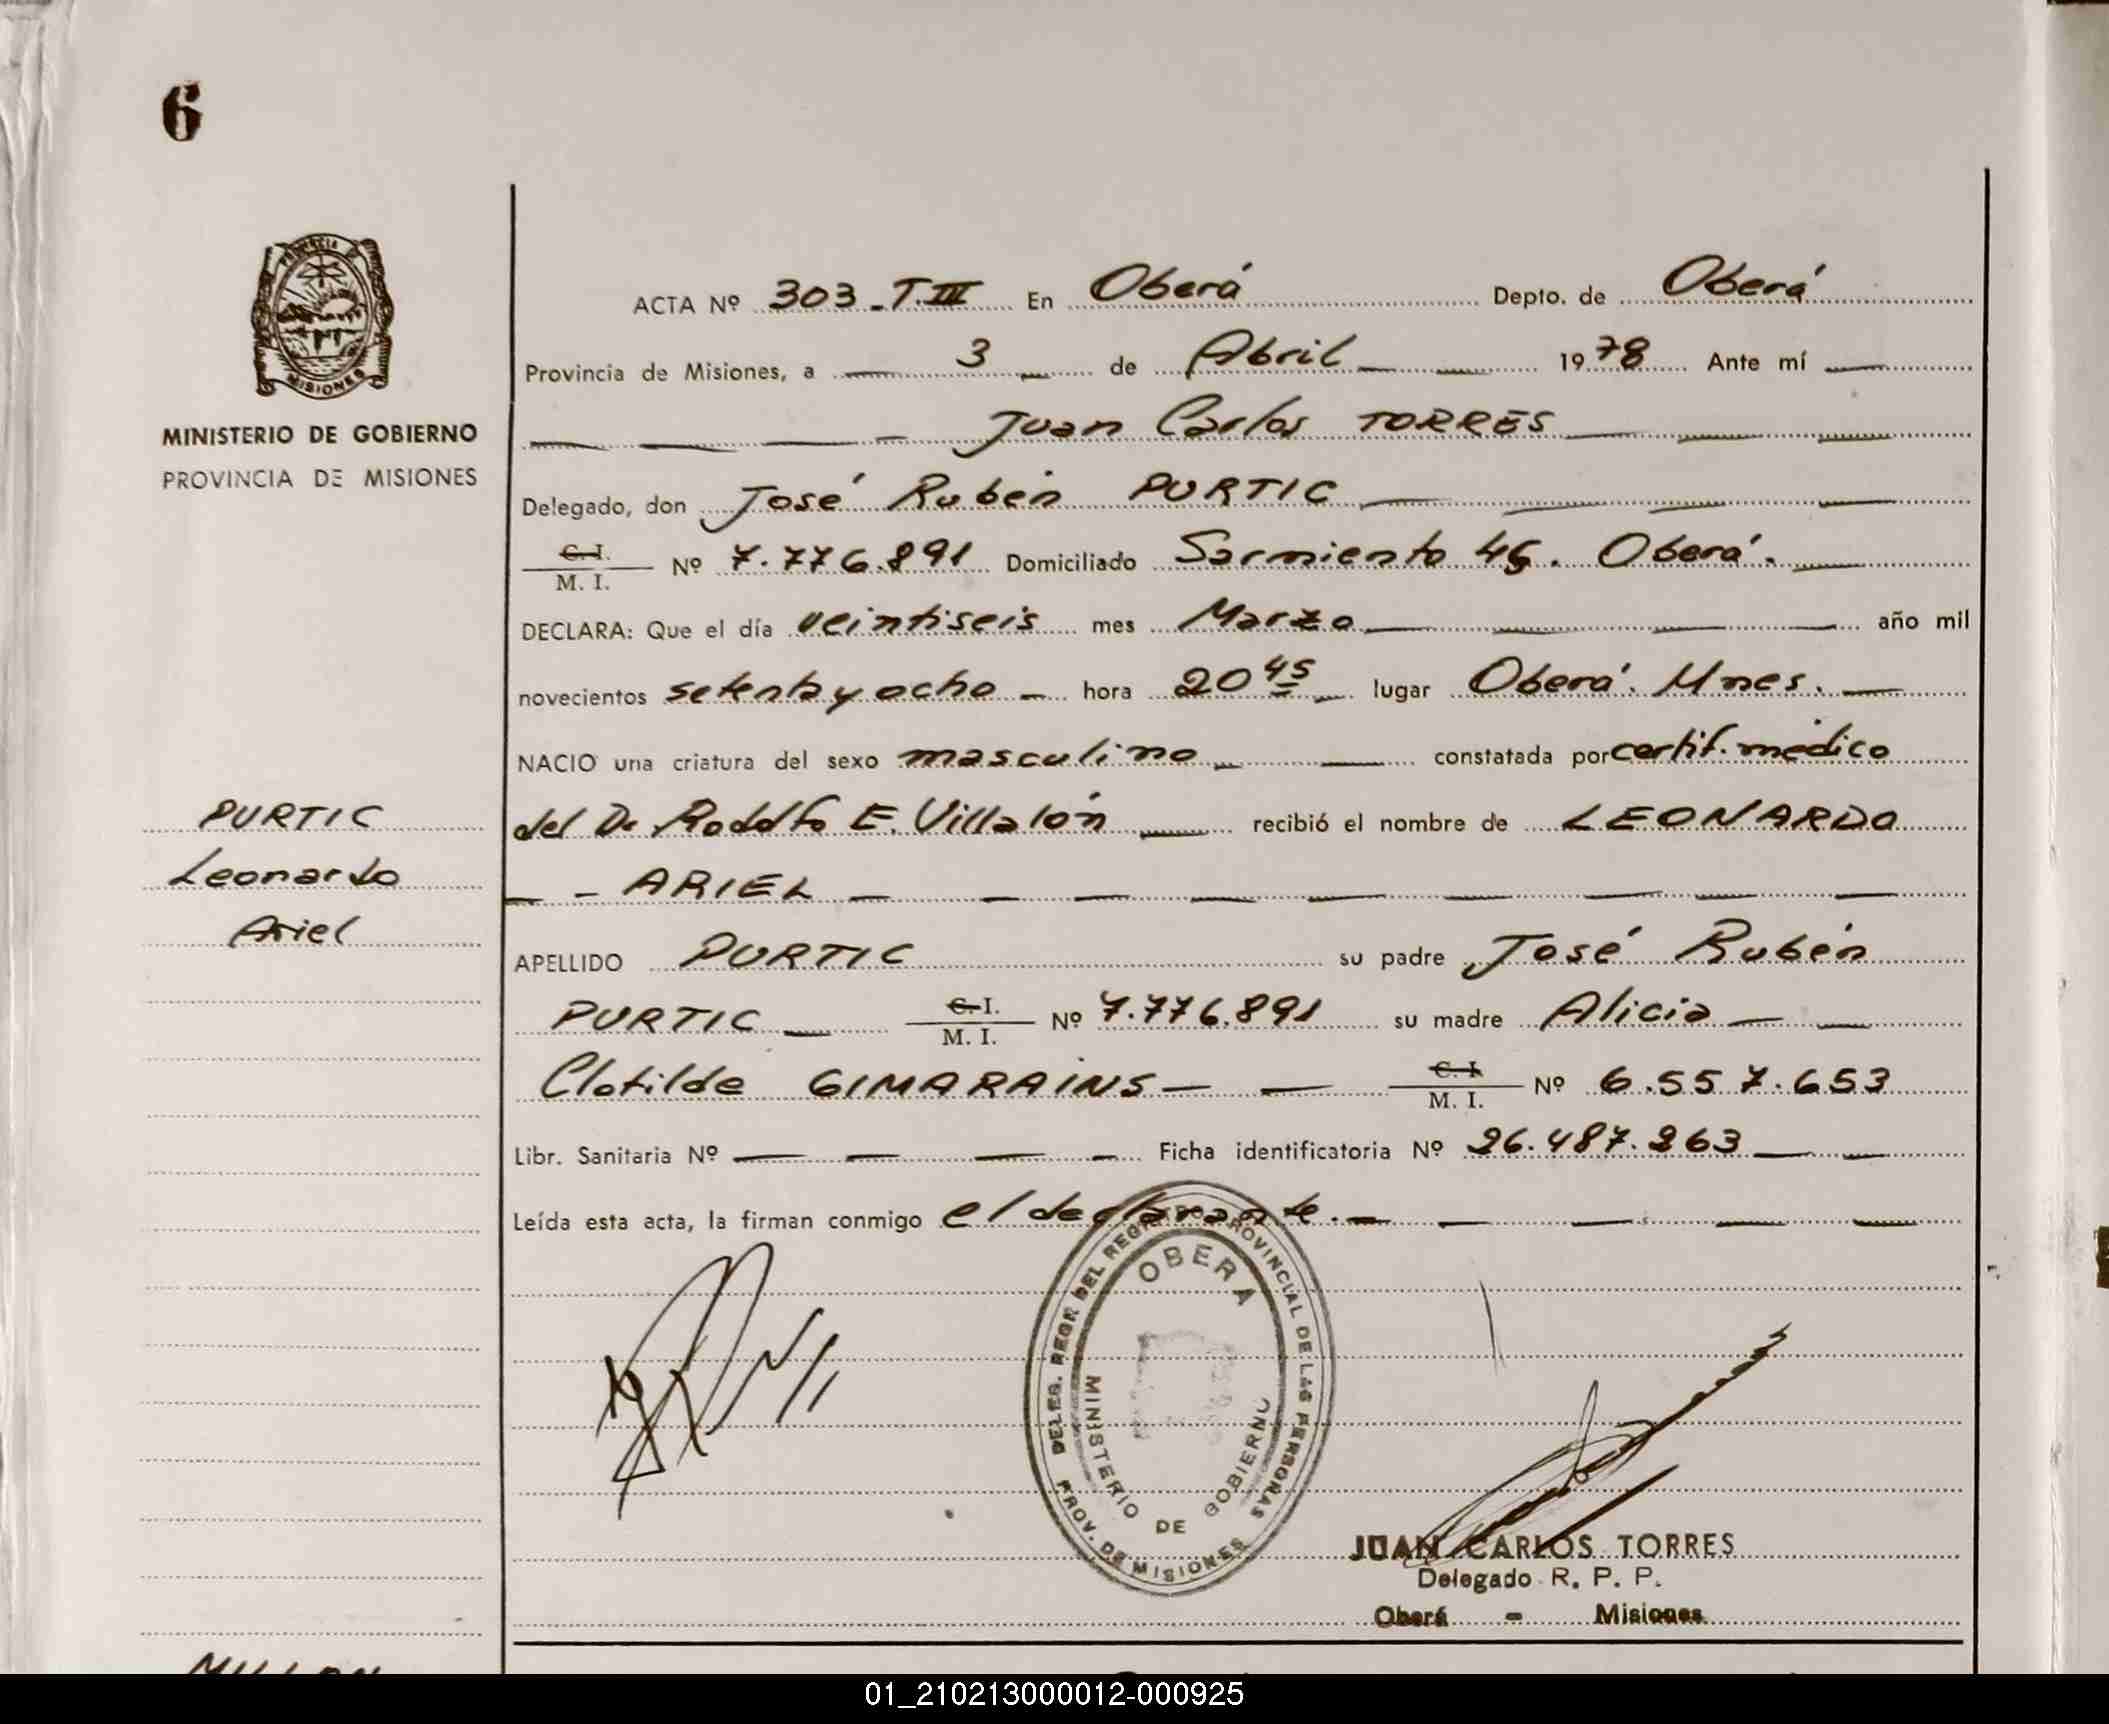 6
PROVINCIA DE
MISIONES
MINISTERIO DE GOBIERNO
PROVINCIA DE MISIONES
ACTA Nº 303 - T. III En Oberá Depto. de Oberá
Provincia de Misiones, a 3 de Abril 1978 Ante mí
Juan Carlos TORRES
Delegado, don José Rubén PURTIC
C. I.
M. I. Nº 7.776.891 Domiciliado Sarmiento 45. Oberá.
DECLARA: Que el día veintiseis mes Marzo año mil
novecientos setenta y ocho hora 20 45 lugar Oberá. Mnes.
NACIO una criatura del sexo masculino constatada por certif. médico
del Dr Rodolfo E. Villalón recibió el nombre de LEONARDO
ARIEL
PURTIC
Leonardo
Ariel
APELLIDO PURTIC su padre José Rubén
PURTIC C. I.
M. I. Nº 7.776.891 su madre Alicia
Clotilde GIMARAINS C. I.
M. I. Nº 6.557.653
Libr. Sanitaria Nº Ficha identificatoria Nº 26.487.263
Leída esta acta, la firman conmigo el declarante.
DELEG. REGN. DEL REGISTRO PROVINCIAL DE LAS PERSONAS
OBERA
MINISTERIO DE GOBIERNO
PROV. DE MISIONES
JUAN CARLOS TORRES
Delegado R. P. P.
Oberá - Misiones
01_210213000012-000925